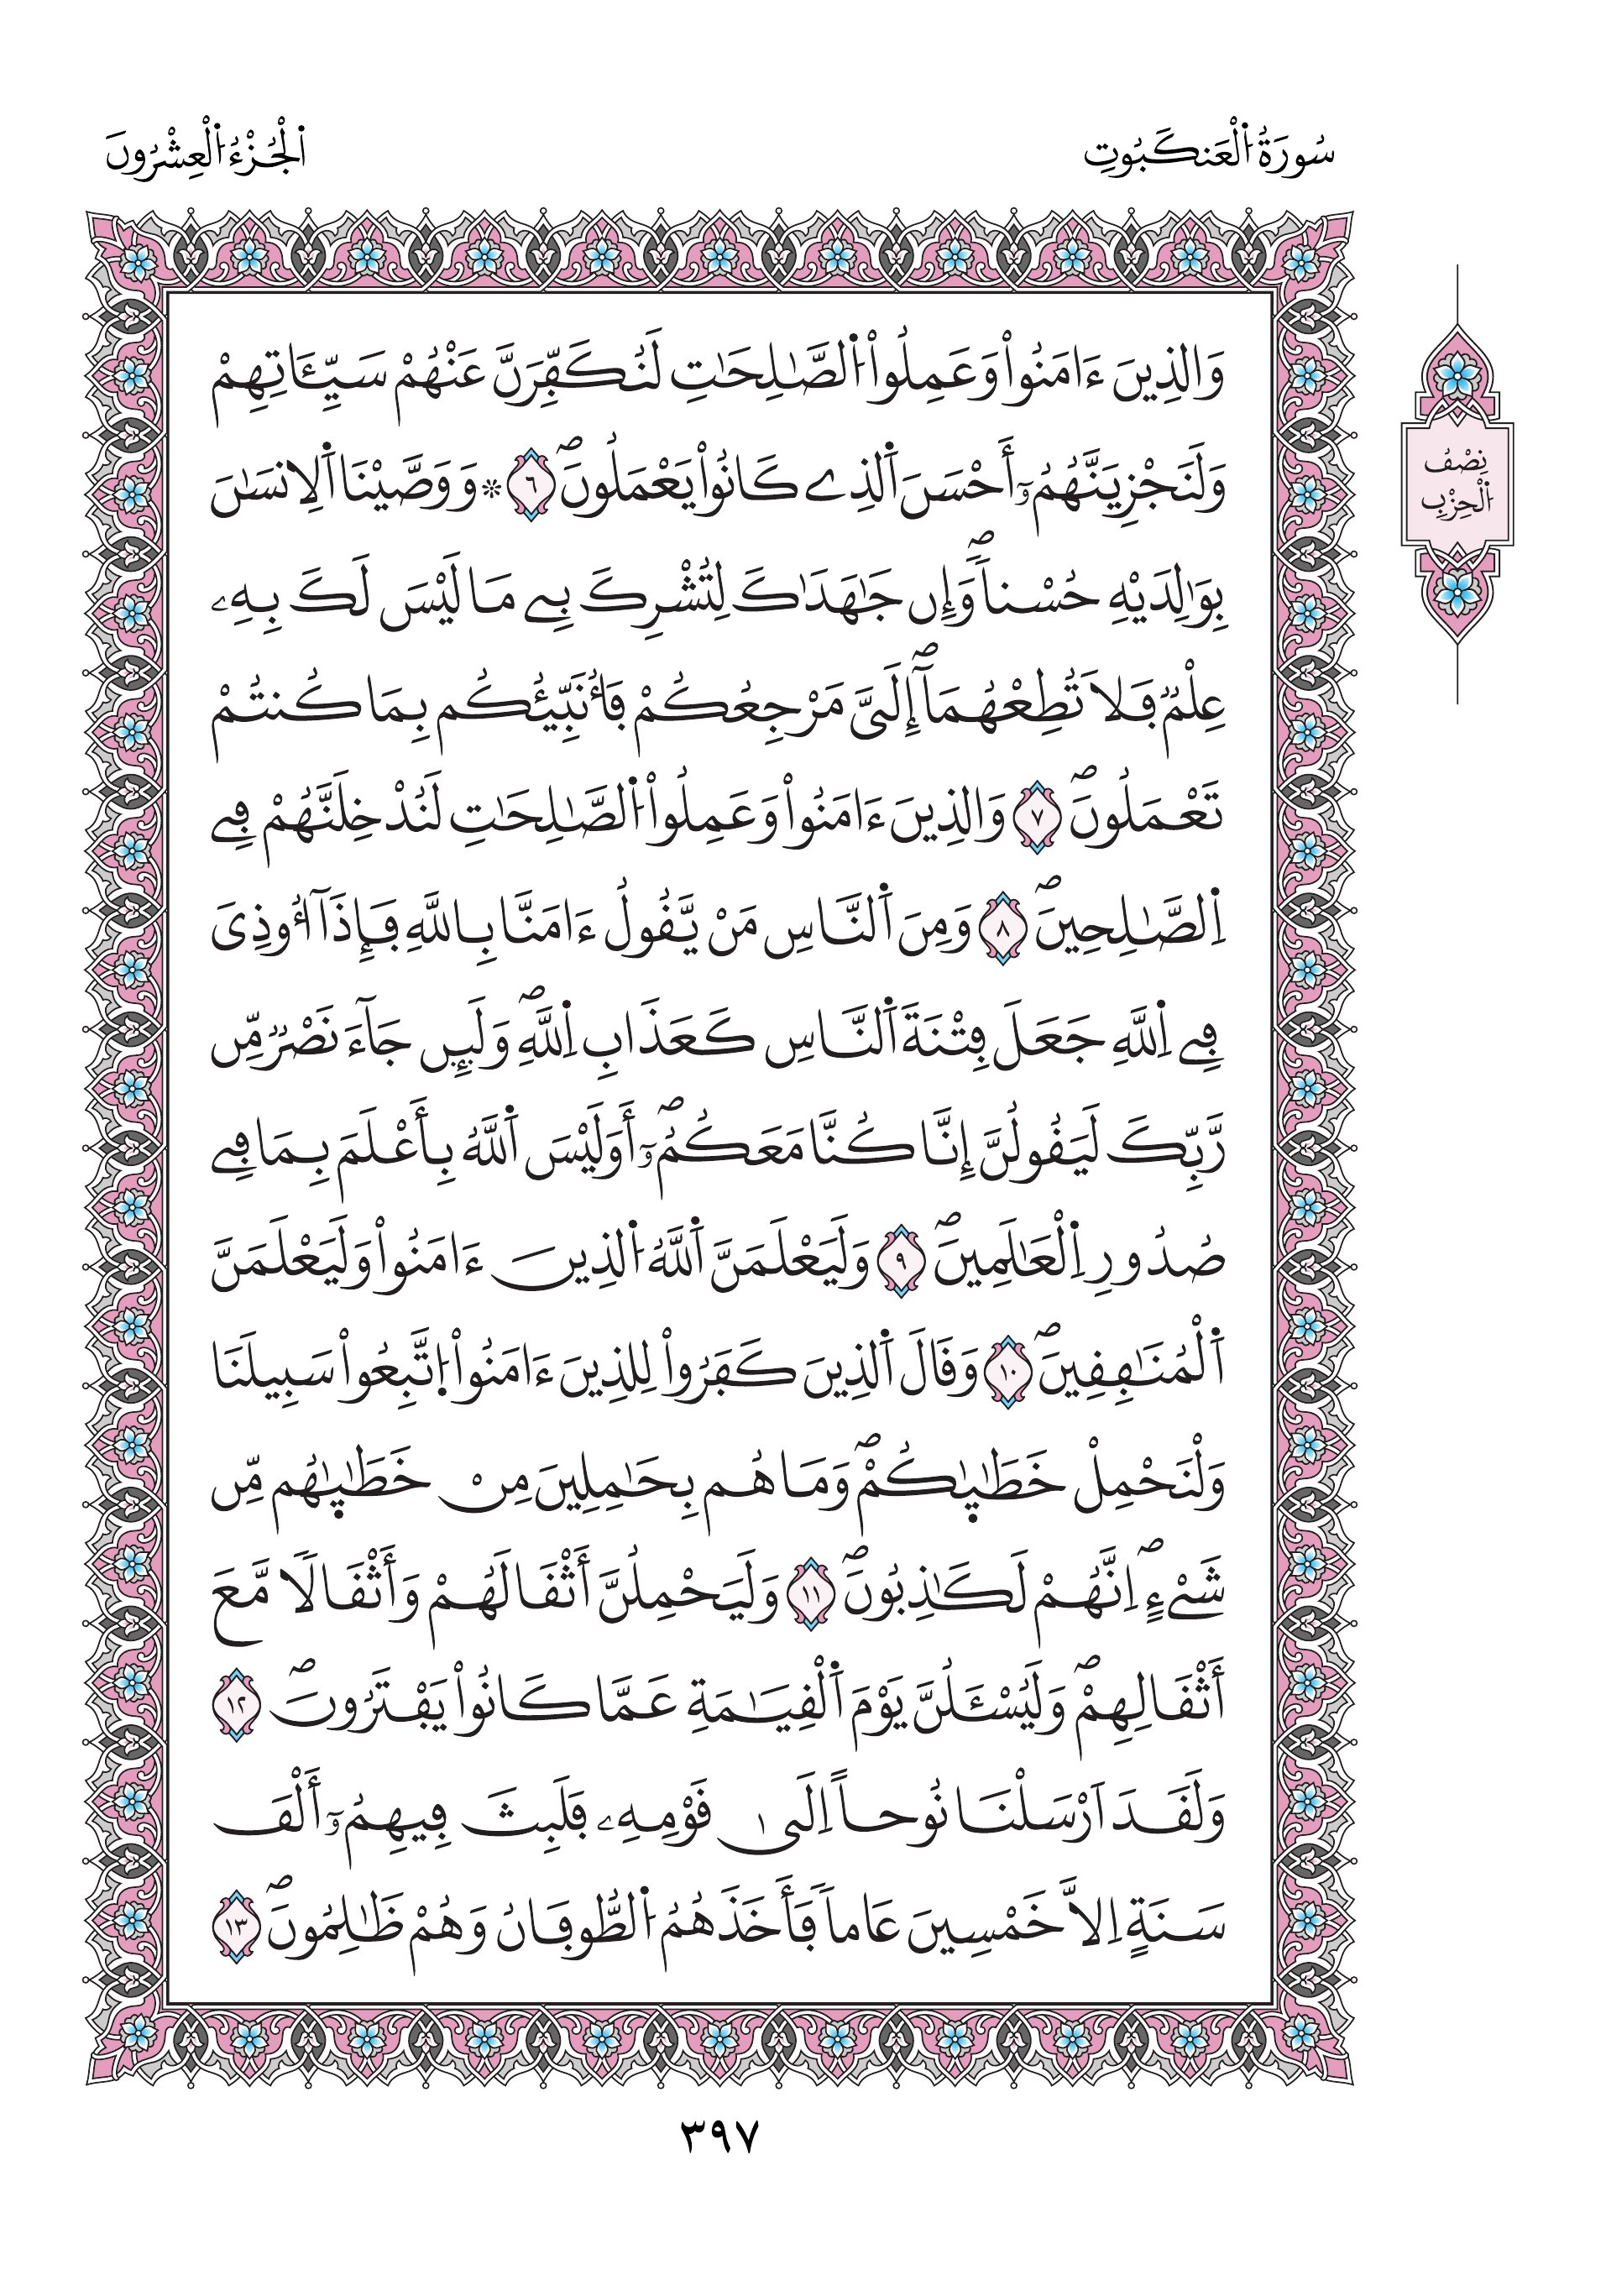 سُورَةُ اُ۬لْعَنكَبُوتِ
اَ۬لْجُزْءُ اُ۬لْعِشْرُونَ
وَالذِينَ ءَامَنُواْ وَعَمِلُواْ اُ۬لصَّٰلِحَٰتِ لَنُكَفِّرَنَّ عَنْهُمْ سَيِّـَٔاتِهِمْ
وَلَنَجْزِيَنَّهُمُۥٓ أَحْسَنَ اَ۬لذِے كَانُواْ يَعْمَلُونَۖ ٦ ۞ وَوَصَّيْنَا اَ۬لِانسَٰنَ
بِوَٰلِدَيْهِ حُسْناٗۖ وَإِن جَٰهَدَٰكَ لِتُشْرِكَ بِے مَا لَيْسَ لَكَ بِهِۦ
عِلْمٞ فَلَا تُطِعْهُمَآۖ إِلَيَّ مَرْجِعُكُمْ فَأُنَبِّئُكُم بِمَا كُنتُمْ
تَعْمَلُونَۖ ٧ وَالذِينَ ءَامَنُواْ وَعَمِلُواْ اُ۬لصَّٰلِحَٰتِ لَنُدْخِلَنَّهُمْ فِے
اِ۬لصَّٰلِحِينَۖ ٨ وَمِنَ اَ۬لنَّاسِ مَنْ يَّقُولُ ءَامَنَّا بِاللَّهِ فَإِذَآ أُوذِيَ
فِے اِ۬للَّهِ جَعَلَ فِتْنَةَ اَ۬لنَّاسِ كَعَذَابِ اِ۬للَّهِۖ وَلَئِن جَآءَ نَصْرٞ مِّن
رَّبِّكَ لَيَقُولُنَّ إِنَّا كُنَّا مَعَكُمُۥٓۖ أَوَلَيْسَ اَ۬للَّهُ بِأَعْلَمَ بِمَا فِے
صُدُورِ اِ۬لْعَٰلَمِينَۖ ٩ وَلَيَعْلَمَنَّ اَ۬للَّهُ اُ۬لذِينَ ءَامَنُواْ وَلَيَعْلَمَنَّ
اَ۬لْمُنَٰفِقِينَۖ ١٠ وَقَالَ اَ۬لذِينَ كَفَرُواْ لِلذِينَ ءَامَنُواْ اُ۪تَّبِعُواْ سَبِيلَنَا
وَلْنَحْمِلْ خَطَٰيٰكُمْۖ وَمَا هُم بِحَٰمِلِينَ مِنْ خَطَٰيٰهُم مِّن
شَےْءٍۖ اِنَّهُمْ لَكَٰذِبُونَۖ ١١ وَلَيَحْمِلُنَّ أَثْقَالَهُمْ وَأَثْقَالٗا مَّعَ
أَثْقَالِهِمْۖ وَلَيُسْـَٔلُنَّ يَوْمَ اَ۬لْقِيَٰمَةِ عَمَّا كَانُواْ يَفْتَرُونَۖ ١٢
وَلَقَدَ اَرْسَلْنَا نُوحاً اِلَىٰ قَوْمِهِۦ فَلَبِثَ فِيهِمُۥٓ أَلْفَ
سَنَةٍ اِلَّا خَمْسِينَ عَاماٗ فَأَخَذَهُمُ اُ۬لطُّوفَانُ وَهُمْ ظَٰلِمُونَۖ ١٣
نِصْفُ
اُ۬لْحِزْبِ
٣٩٧